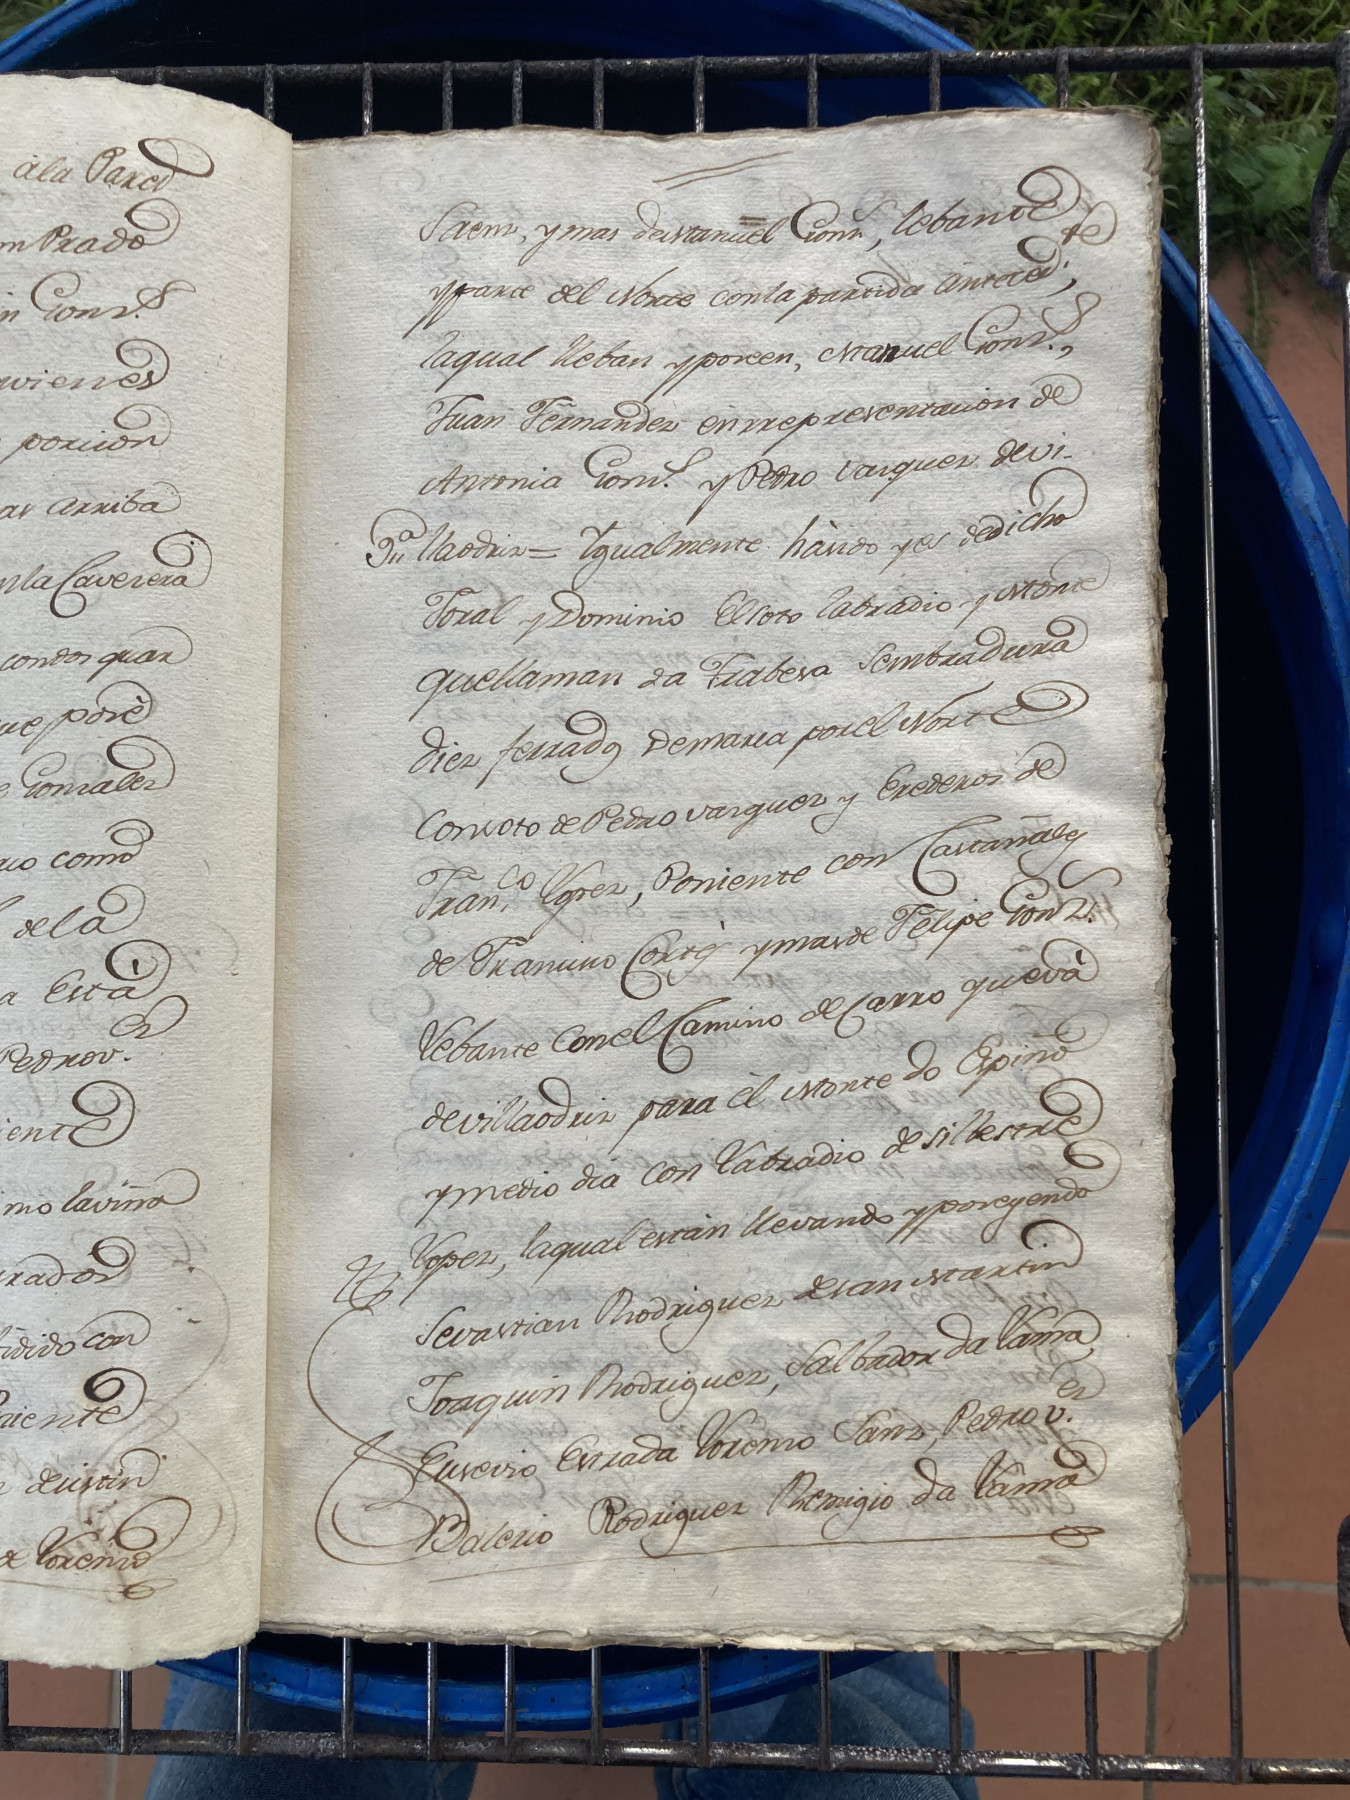 àla Pared
m Prado
n Gonz.s
vienes
porcion
as arriba
nla Caverera
condos quar
ue porè
e Gonzalez
uo como
dela
a Està
ez
Pedro v.
iente
mo laviña
rrados
idido con
niente
Lorenzo
Saenz, ymas de Manuel Gonz.s, lebante
yparte del Norte conla partida anteced.te;
laqual lleban yposeen, Manuel Gonz.s,
Juan Fernandez enrrepresentacion de
Antonia Gonz.s y Pedro vazquez devi-
llaodriz = Ygualmente hàsido yes dedicho
Foral y Dominio Elsoto labradio y Monte
quellaman da Trabesa Sembradura
diez ferrados Demarca porel Norte
Consoto de Pedro vazquez y Erederos de
Fran.co Lopez, Poniente con Castañales
de Francisco Cortés ymasde Felipe Gonz.s
Lebante Conel Camino de Carro quevà
devillaodriz para èl Monte do Espiño
ymedio dia con Labradio de silbestre
Lopez, laqual estàn llevando yposeyendo
Sevastian Rodriguez desan Martin
Joaquin Rodriguez, Salbador da Vama,
Eusevio Estrada Lorenzo Sanz, Pedro v.ez
Balerio Rodriguez Remigio da Vama